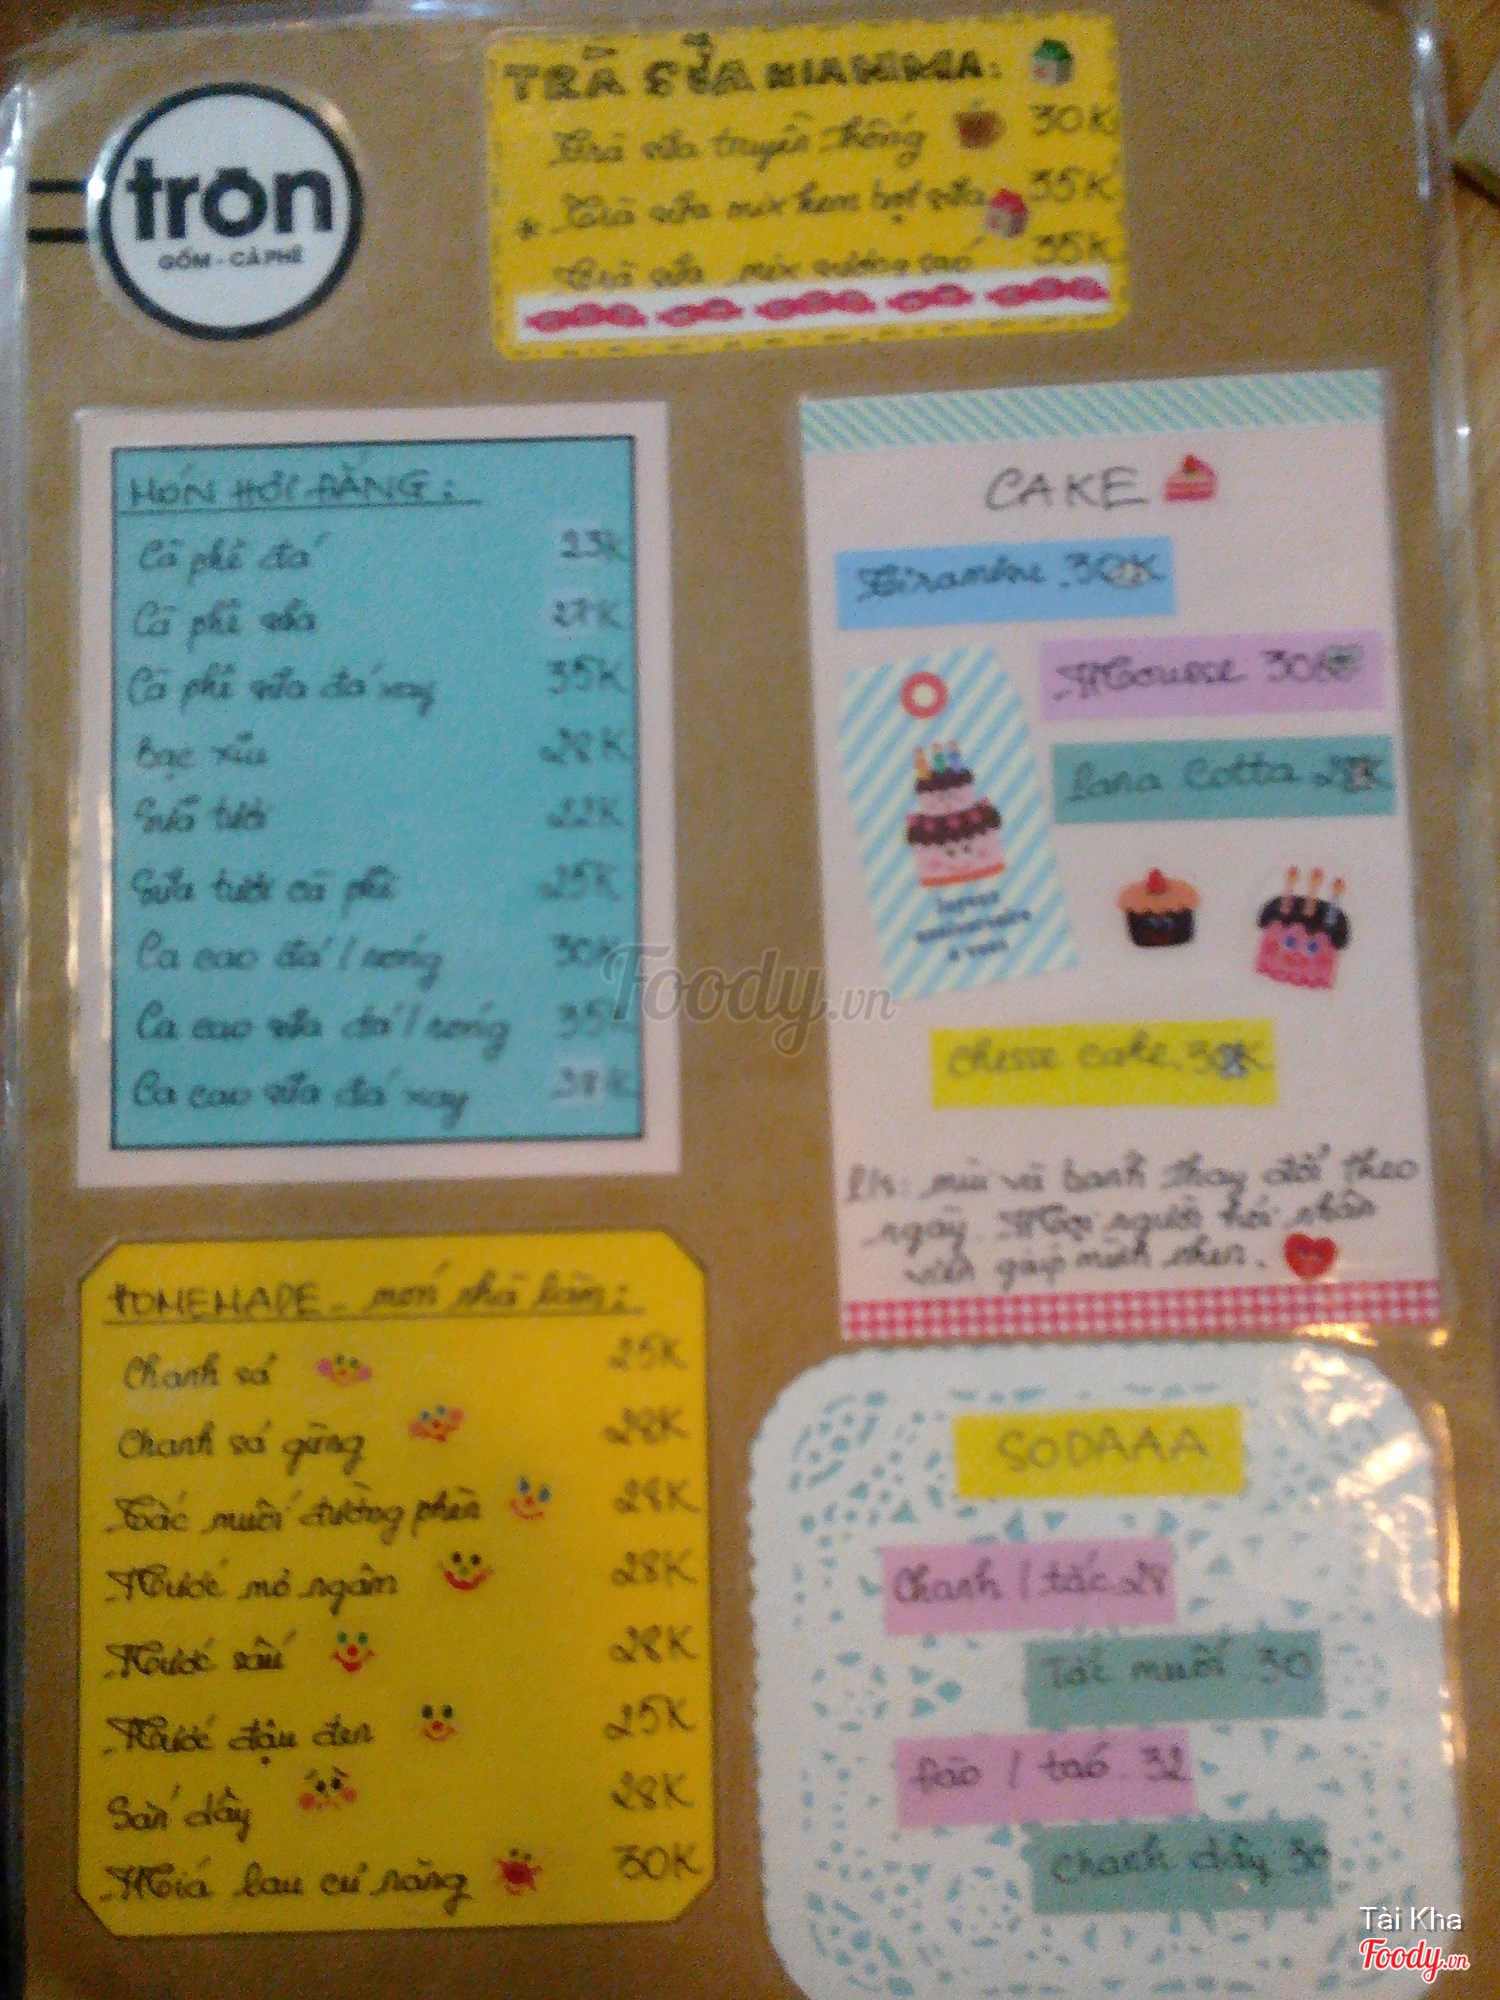 trōn
GỐM - CÀ PHÊ
TRÀ SỮA NIANIMIA:
Trà sữa truyền thống 30K
* Trà sữa mix kem bọt sữa 35K
Trà sữa mix sương sáo 35K
MÓN HƠI ĐẮNG:
Cà phê đá 23K
Cà phê sữa 27K
Cà phê sữa đá xay 35K
Bạc xỉu 28K
Sữa tươi 22K
Sữa tươi cà phê 25K
Ca cao đá / nóng 30K
Ca cao sữa đá / nóng 35K
Ca cao sữa đá xay 38K
CAKE
Tiramisu 30K
Mousse 30K
Pana Cotta 28K
Chesse cake. 30K
P/s: mùi vị bánh thay đổi theo
ngày. Mọi người hỏi nhân
viên giúp mình nhen.
HOMEMADE - món nhà làm:
Chanh sả 25K
Chanh sả gừng 28K
Tắc muối đường phèn 28K
Nước mơ ngâm 28K
Nước sấu 28K
Nước đậu đen 25K
Sắn dây 28K
Mía lau củ năng 30K
SODAAA
Chanh / tắc 28
Tắc muối 30
Đào / táo 32
Chanh dây 30
Foody.vn
Tài Kha
Foody.vn